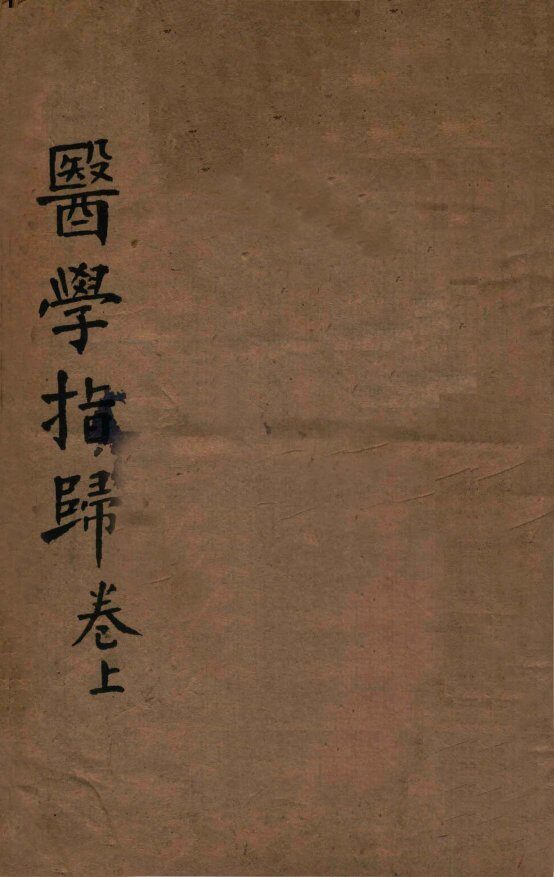 醫學指歸卷上